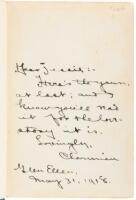 Here's the yarn,
at last; and I
know you'll read
it for the love
story it is.
Lovingly,
Charmian
Glen Ellen,
May 31, 1918.